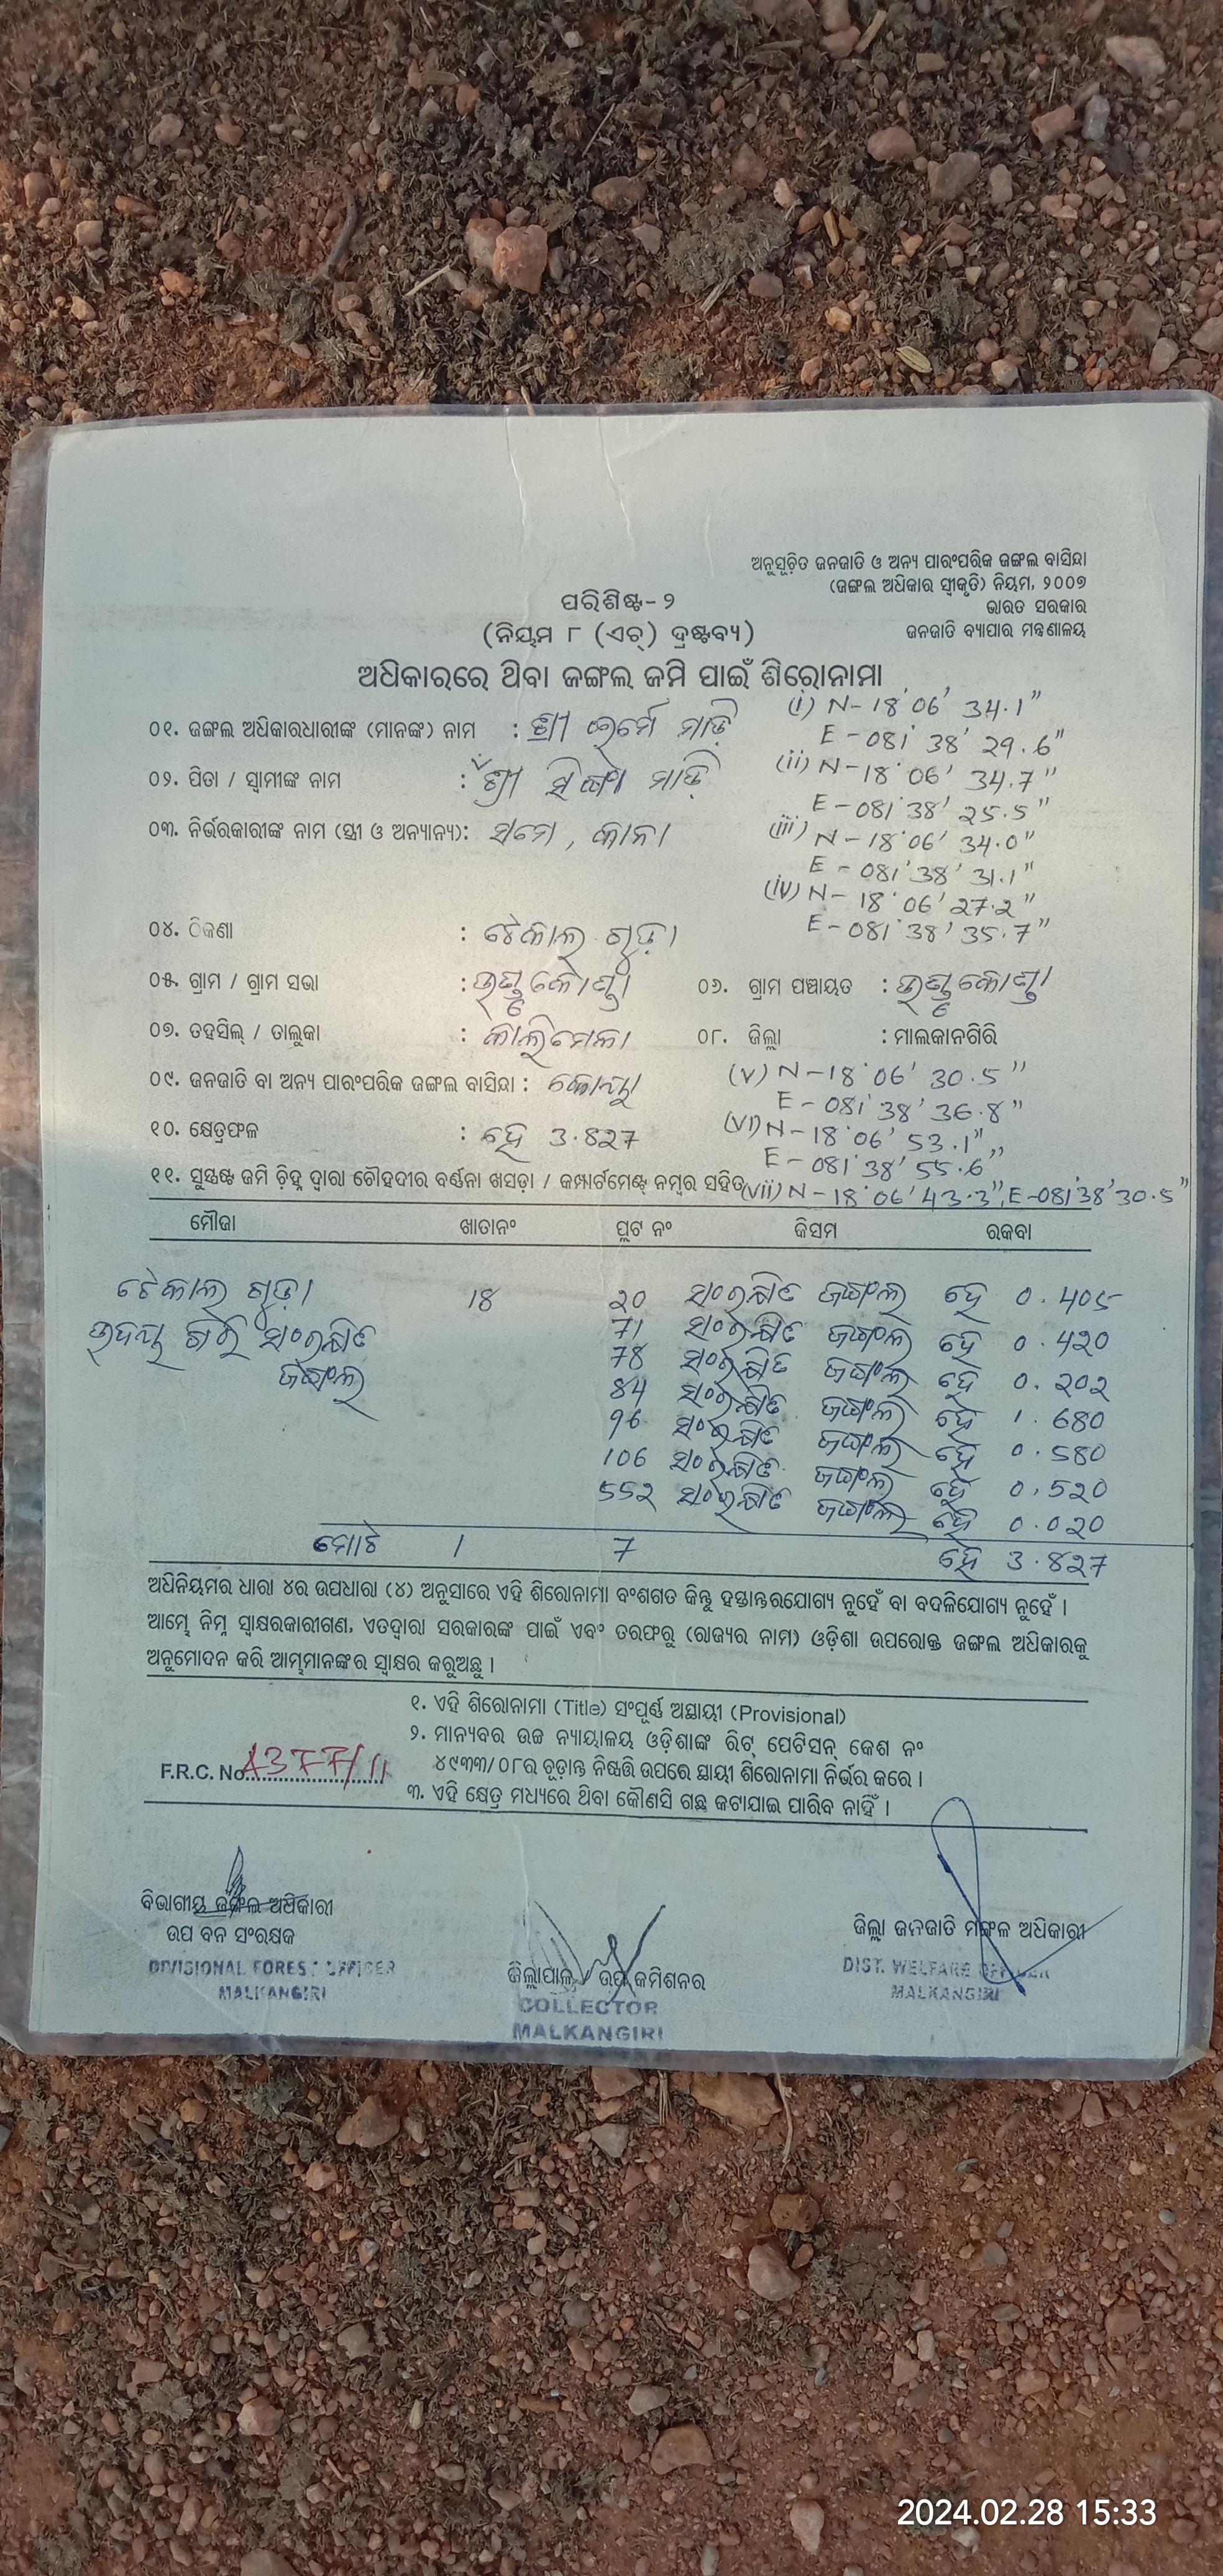 ଅନୁସୂଚିତ ଜନଜାତି ଓ ଅନ୍ୟ ପାରଂପରିକ ଜଙ୍ଗଲ ବାସିନ୍ଦା
(ଜଙ୍ଗଲ ଅଧିକାର ସ୍ୱୀକୃତି) ନିୟମ, ୨୦୦୭
ଭାରତ ସରକାର
ଜନଜାତି ବ୍ୟାପାର ମନ୍ତ୍ରଣାଳୟ
ପରିଶିଷ୍ଟ- ୨
(ନିୟମ ୮ (ଏଚ୍) ଦ୍ରଷ୍ଟବ୍ୟ)
ଅଧିକାରରେ ଥିବା ଜଙ୍ଗଲ ଜମି ପାଇଁ ଶିରୋନାମା
(i) N- 18°06' 34.1"
୦୧. ଜଙ୍ଗଲ ଅଧିକାରଧାରୀଙ୍କ (ମାନଙ୍କ) ନାମ : ଶ୍ରୀ ଇର୍ମେ ମାଡ଼ି
E - 081° 38' 29.6"
(ii) N-18°06' 34.7"
୦୨. ପିତା / ସ୍ୱାମୀଙ୍କ ନାମ : ଶ୍ରୀ ସିଙ୍ଗା ମାଡ଼ି
E - 081°38' 25.5"
୦୩. ନିର୍ଭରକାରୀଙ୍କ ନାମ (ସ୍ତ୍ରୀ ଓ ଅନ୍ୟାନ୍ୟ): ସମେ, କାନା
(iii) N - 18°06' 34.0"
E - 081°38' 31.1"
(iv) N- 18°06' 27.2"
E - 081°38' 35.7"
୦୪. ଠିକଣା : ଟେକାଲ ଗୁଡ଼ା
୦୫. ଗ୍ରାମ / ଗ୍ରାମ ସଭା : ଭୁଣ୍ଡୁକୋଣ୍ଡା ୦୬. ଗ୍ରାମ ପଞ୍ଚାୟତ : ଭୁଣ୍ଡୁକୋଣ୍ଡା
୦୭. ତହସିଲ୍ / ତାଲୁକା : କାଲିମେଳା ୦୮. ଜିଲ୍ଲା : ମାଲକାନଗିରି
୦୯. ଜନଜାତି ବା ଅନ୍ୟ ପାରଂପରିକ ଜଙ୍ଗଲ ବାସିନ୍ଦା : କୋୟା
(v) N-18°06' 30.5"
E - 081°38' 36.8"
୧୦. କ୍ଷେତ୍ରଫଳ : ହେ 3.827
(vi) N-18°06' 53.1"
E - 081°38' 55.6"
୧୧. ସୁସ୍ପଷ୍ଟ ଜମି ଚିହ୍ନ ଦ୍ୱାରା ଚୌହଦୀର ବର୍ଣ୍ଣନା ଖସଡ଼ା / କମ୍ପାର୍ଟମେଣ୍ଟ୍ ନମ୍ବର ସହିତ
(vii) N - 18°06' 43.3", E-081°38' 30.5"
ମୌଜା ଖାତାନଂ ପ୍ଲଟ ନଂ କିସମ ରକବା
ଟେକାଲ ଗୁଡ଼ା 18 20 ସଂରକ୍ଷିତ ଜଙ୍ଗଲ ହେ 0.405
ଉଦୟ ଗିରି ସଂରକ୍ଷିତ 71 ସଂରକ୍ଷିତ ଜଙ୍ଗଲ ହେ 0.420
ଜଙ୍ଗଲ 78 ସଂରକ୍ଷିତ ଜଙ୍ଗଲ ହେ 0.202
84 ସଂରକ୍ଷିତ ଜଙ୍ଗଲ ହେ 1.680
96 ସଂରକ୍ଷିତ ଜଙ୍ଗଲ ହେ 0.580
106 ସଂରକ୍ଷିତ ଜଙ୍ଗଲ ହେ 0.520
552 ସଂରକ୍ଷିତ ଜଙ୍ଗଲ ହେ 0.020
ମୋଟ 1 7 ହେ 3.827
ଅଧିନିୟମର ଧାରା ୪ର ଉପଧାରା (୪) ଅନୁସାରେ ଏହି ଶିରୋନାମା ବଂଶଗତ କିନ୍ତୁ ହସ୍ତାନ୍ତରଯୋଗ୍ୟ ନୁହେଁ ବା ବଦଳିଯୋଗ୍ୟ ନୁହେଁ ।
ଆମ୍ଭେ ନିମ୍ନ ସ୍ୱାକ୍ଷରକାରୀଗଣ, ଏତଦ୍ୱାରା ସରକାରଙ୍କ ପାଇଁ ଏବଂ ତରଫରୁ (ରାଜ୍ୟର ନାମ) ଓଡ଼ିଶା ଉପରୋକ୍ତ ଜଙ୍ଗଲ ଅଧିକାରକୁ
ଅନୁମୋଦନ କରି ଆମ୍ଭମାନଙ୍କର ସ୍ୱାକ୍ଷର କରୁଅଛୁ ।
୧. ଏହି ଶିରୋନାମା (Title) ସଂପୂର୍ଣ୍ଣ ଅସ୍ଥାୟୀ (Provisional)
୨. ମାନ୍ୟବର ଉଚ୍ଚ ନ୍ୟାୟାଳୟ ଓଡ଼ିଶାଙ୍କ ରିଟ୍ ପେଟିସନ୍ କେଶ ନଂ
୪୯୩୩/୦୮ର ଚୂଡ଼ାନ୍ତ ନିଷ୍ପତ୍ତି ଉପରେ ସ୍ଥାୟୀ ଶିରୋନାମା ନିର୍ଭର କରେ ।
F.R.C. No. 1377/11
୩. ଏହି କ୍ଷେତ୍ର ମଧ୍ୟରେ ଥିବା କୌଣସି ଗଛ କଟାଯାଇ ପାରିବ ନାହିଁ ।
ବିଭାଗୀୟ ଜଙ୍ଗଲ ଅଧିକାରୀ
ଉପ ବନ ସଂରକ୍ଷକ
DIVISIONAL FOREST OFFICER
MALKANGIRI
ଜିଲ୍ଲାପାଳ / ଉପ କମିଶନର
COLLECTOR
MALKANGIRI
ଜିଲ୍ଲା ଜନଜାତି ମଙ୍ଗଳ ଅଧିକାରୀ
DIST. WELFARE OFFICER
MALKANGIRI
2024.02.28 15:33